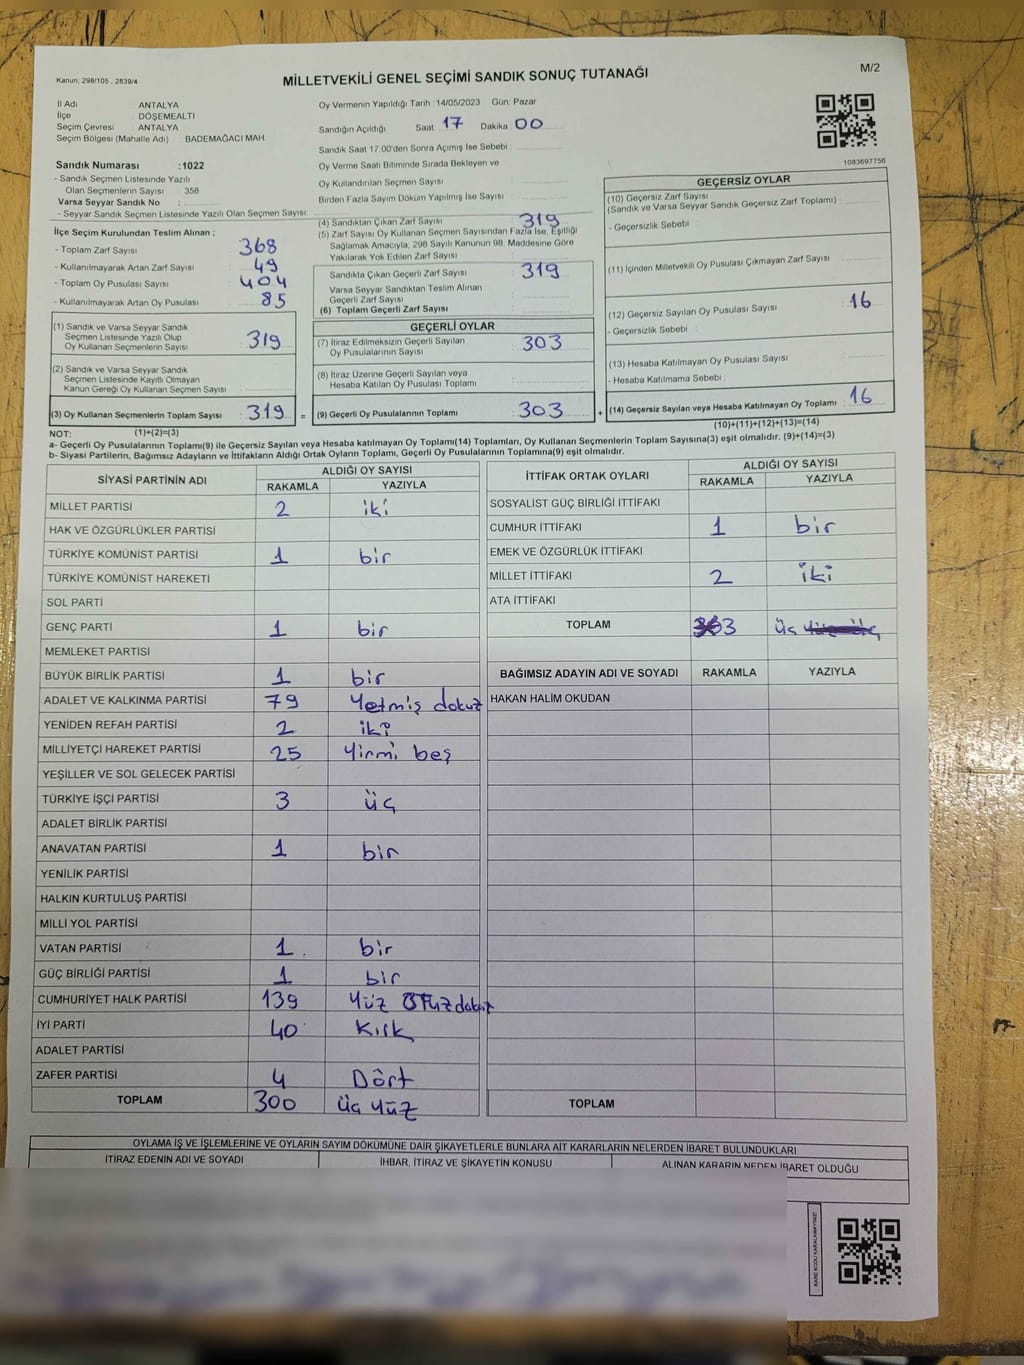 Kanun: 298/105 , 2839/4
MİLLETVEKİLİ GENEL SEÇİMİ SANDIK SONUÇ TUTANAĞI
M/2
İl Adı : ANTALYA
İlçe : DÖŞEMEALTI
Seçim Çevresi : ANTALYA
Seçim Bölgesi (Mahalle Adı) : BADEMAĞACI MAH.
Sandık Numarası :1022
- Sandık Seçmen Listesinde Yazılı
Olan Seçmenlerin Sayısı : 358
Varsa Seyyar Sandık No :
- Seyyar Sandık Seçmen Listesinde Yazılı Olan Seçmen Sayısı:
Oy Vermenin Yapıldığı Tarih : 14/05/2023 Gün: Pazar
Sandığın Açıldığı Saat: 17 Dakika: 00
Sandık Saat 17.00'den Sonra Açımış İse Sebebi :
Oy Verme Saati Bitiminde Sırada Bekleyen ve
Oy Kullandırılan Seçmen Sayısı :
Birden Fazla Sayım Döküm Yapılmış İse Sayısı :
1083697756
İlçe Seçim Kurulundan Teslim Alınan ;
- Toplam Zarf Sayısı : 368
- Kullanılmayarak Artan Zarf Sayısı : 49
- Toplam Oy Pusulası Sayısı : 404
- Kullanılmayarak Artan Oy Pusulası : 85
(1) Sandık ve Varsa Seyyar Sandık
Seçmen Listesinde Yazılı Olup
Oy Kullanan Seçmenlerin Sayısı : 319
(2) Sandık ve Varsa Seyyar Sandık
Seçmen Listesinde Kayıtlı Olmayan
Kanun Gereği Oy Kullanan Seçmen Sayısı :
(3) Oy Kullanan Seçmenlerin Toplam Sayısı : 319 =
(4) Sandıktan Çıkan Zarf Sayısı : 319
(5) Zarf Sayısı Oy Kullanan Seçmen Sayısından Fazla İse, Eşitliği
Sağlamak Amacıyla, 298 Sayılı Kanunun 98. Maddesine Göre
Yakılarak Yok Edilen Zarf Sayısı :
Sandıkta Çıkan Geçerli Zarf Sayısı : 319
Varsa Seyyar Sandıktan Teslim Alınan
Geçerli Zarf Sayısı :
(6) Toplam Geçerli Zarf Sayısı :
GEÇERLİ OYLAR
(7) İtiraz Edilmeksizin Geçerli Sayılan
Oy Pusulalarının Sayısı : 303
(8) İtiraz Üzerine Geçerli Sayılan veya
Hesaba Katılan Oy Pusulası Toplamı :
(9) Geçerli Oy Pusulalarının Toplamı : 303 +
GEÇERSİZ OYLAR
(10) Geçersiz Zarf Sayısı
(Sandık ve Varsa Seyyar Sandık Geçersiz Zarf Toplamı) :
- Geçersizlik Sebebi :
(11) İçinden Milletvekili Oy Pusulası Çıkmayan Zarf Sayısı :
(12) Geçersiz Sayılan Oy Pusulası Sayısı : 16
- Geçersizlik Sebebi :
(13) Hesaba Katılmayan Oy Pusulası Sayısı :
- Hesaba Katılmama Sebebi :
(14) Geçersiz Sayılan veya Hesaba Katılmayan Oy Toplamı : 16
NOT: (1)+(2)=(3) (10)+(11)+(12)+(13)=(14)
a- Geçerli Oy Pusulalarının Toplamı(9) ile Geçersiz Sayılan veya Hesaba katılmayan Oy Toplamı(14) Toplamları, Oy Kullanan Seçmenlerin Toplam Sayısına(3) eşit olmalıdır. (9)+(14)=(3)
b- Siyasi Partilerin, Bağımsız Adayların ve İttifakların Aldığı Ortak Oyların Toplamı, Geçerli Oy Pusulalarının Toplamına(9) eşit olmalıdır.
SİYASİ PARTİNİN ADI ALDIĞI OY SAYISI
RAKAMLA YAZIYLA
MİLLET PARTİSİ 2 iki
HAK VE ÖZGÜRLÜKLER PARTİSİ
TÜRKİYE KOMÜNİST PARTİSİ 1 bir
TÜRKİYE KOMÜNİST HAREKETİ
SOL PARTİ
GENÇ PARTİ 1 bir
MEMLEKET PARTİSİ
BÜYÜK BİRLİK PARTİSİ 1 bir
ADALET VE KALKINMA PARTİSİ 79 Yetmiş dokuz
YENİDEN REFAH PARTİSİ 2 iki
MİLLİYETÇİ HAREKET PARTİSİ 25 Yirmi beş
YEŞİLLER VE SOL GELECEK PARTİSİ
TÜRKİYE İŞÇİ PARTİSİ 3 üç
ADALET BİRLİK PARTİSİ
ANAVATAN PARTİSİ 1 bir
YENİLİK PARTİSİ
HALKIN KURTULUŞ PARTİSİ
MİLLİ YOL PARTİSİ
VATAN PARTİSİ 1 bir
GÜÇ BİRLİĞİ PARTİSİ 1 bir
CUMHURİYET HALK PARTİSİ 139 Yüz OTuz dokuz
İYİ PARTİ 40 Kırk
ADALET PARTİSİ
ZAFER PARTİSİ 4 Dört
TOPLAM 300 üç Yüz
İTTİFAK ORTAK OYLARI ALDIĞI OY SAYISI
RAKAMLA YAZIYLA
SOSYALİST GÜÇ BİRLİĞİ İTTİFAKI
CUMHUR İTTİFAKI 1 bir
EMEK VE ÖZGÜRLÜK İTTİFAKI
MİLLET İTTİFAKI 2 iki
ATA İTTİFAKI
TOPLAM 3 üç
BAĞIMSIZ ADAYIN ADI VE SOYADI RAKAMLA YAZIYLA
HAKAN HALİM OKUDAN
TOPLAM
OYLAMA İŞ VE İŞLEMLERİNE VE OYLARIN SAYIM DÖKÜMÜNE DAİR ŞİKAYETLERLE BUNLARA AİT KARARLARIN NELERDEN İBARET BULUNDUKLARI
İTİRAZ EDENİN ADI VE SOYADI İHBAR, İTİRAZ VE ŞİKAYETİN KONUSU ALINAN KARARIN NEDEN İBARET OLDUĞU
KARE KODU KARALAMAYINIZ!